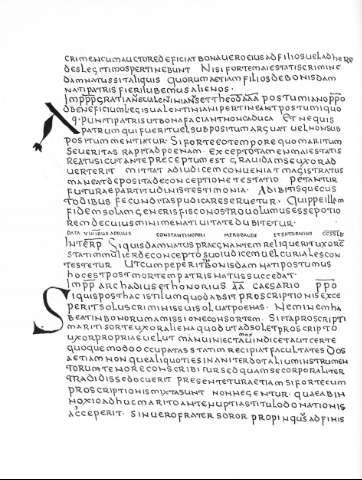 CRIMEN CUM AUCTORE DEFICIAT BONA UERO EIUS AD FILIOS UEL AD HERE
DES LEGITIMOS PERTINEBUNT NISI FORTE MAIESTATIS CRIMINE
DAMNATUS SIT ALIQUIS QUORUM ETIAM FILIOS DE BONIS DAM
NATI PATRIS FIERI IUBEMUS ALIENOS
IMPPP GRATIANS UALENINIANS ET THEOD AAA POSTUMIANO PPO
AD BENEFICIUM LEGIS UALENTINIANI PERTINEANT POSTUMI QUO
Q PUNITI PATRIS UT BONA FACIANT NON CADUCA ET NE QUIS
PATRUM QUI FUERIT UEL SUBPOSITUM ARGUAT UEL NON SUB
POSTUM MENTIATUR SI FORTE EO TEMPORE QUO MARITUM
SEUERITAS RAPIT AD POENAM EXCEPTO TAMEN MAIESTATIS
REATU SICUT ANTE PRECEPTUM EST GRAUIDAM SE UXOR AD
UERTERIT MITTAT AD IUDICEM CONUENIAT MAGISTRATUS
MANEAT DEPOSITA DECONCEPTIONE TESTATIO PETANTUR
FUTURAE PARTITUDINIS TESTIMONIA ADIBITISQUE CUS
TODIBUS FECUNDITAS PUDICA RESERUETUR QUIPPE ILLAM
FIDEM SOLAM GENERIS FISCO NOSTRO UOLUMUS ESSE POTIO
REM DE CUIUS MINIME MATURITATE DUBITETUR
DATA CONSTANTINOPOLI MEROBAUDE ET SATURNINO CONSSLB
INTERP SI QUIS DAMNATUS PRAEGNANTEM RELIQUERIT UXORE
STATIM MULIER DE CONCEPTO SUO IUDICEM UEL CURIALES CON
TESTETUR UT CUM PEPERIT BONIS DAMNATI POSTUMUS
HOC EST POST MORTEM PATRIS NATUS SUCCEDAT
IMPP ARCHADIUS ET HONORIUS AA CAESARIO PPO
SI QUIS POSTHAC ISTI LUM QUOD ABSIT PROSCRIPTIONIS EXCE
BERIT SOLUS CRIMINIS SUI SOLUAT POENAS NEMINEM HA
BEAT IN BONORUM AMISSIONE CONSORTEM SI ITA PROSCRIPTI
MARITI SORTE UXOR ALIENA QUOD UT ADSOLET PROSCRIPTO
UXOR PROPRIAS UELUT MANU INIECTA UINDICET AUT CERTE
QUOQUE MODO OCCUPATAS STATIM RECIPIAT FACULTATES DOS
AETIAM NON QUE ALIQUOTIES INANITER DOTALIUM INSTRUMEN
TORUM TENORE CONSCRIBITUR SED QUAM SE CORPORALITER
TRADIDISSE DOCUERIT PRESENTETUR AETIAM SI FORTE CUM
PROSCRIPTIONIS MIXTA SUNT NON NEGENTUR QUAE AB IN
NOXIO ADHUC MARITO ANTE NUPTIAS TITULO DONATIONIS
ACCEPERIT SIN UERO FRATER SOROR PROPINQUS AD FINIS